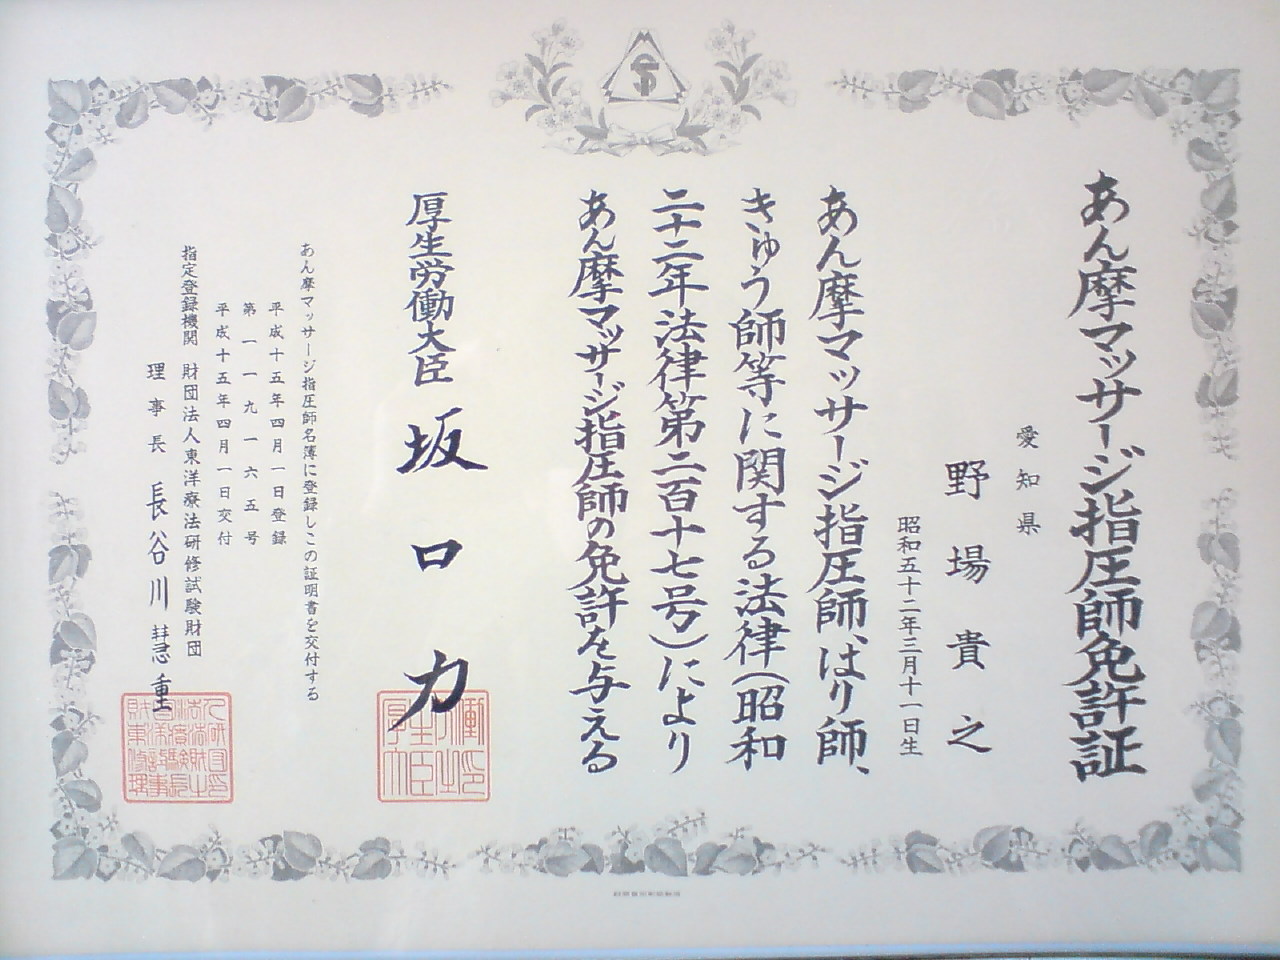 あん摩マッサージ指圧師免許証
愛知県
野場貴之
昭和五十二年三月十一日生
あん摩マッサージ指圧師、はり師、
きゅう師等に関する法律（昭和
二十二年法律第二百十七号）により
あん摩マッサージ指圧師の免許を与える
厚生労働大臣 坂口力
あん摩マッサージ指圧師名簿に登録しこの証明書を交付する
平成十五年四月一日登録
第一一九一六五号
平成十五年四月一日交付
指定登録機関 財団法人東洋療法研修試験財団
理事長 長谷川慧重